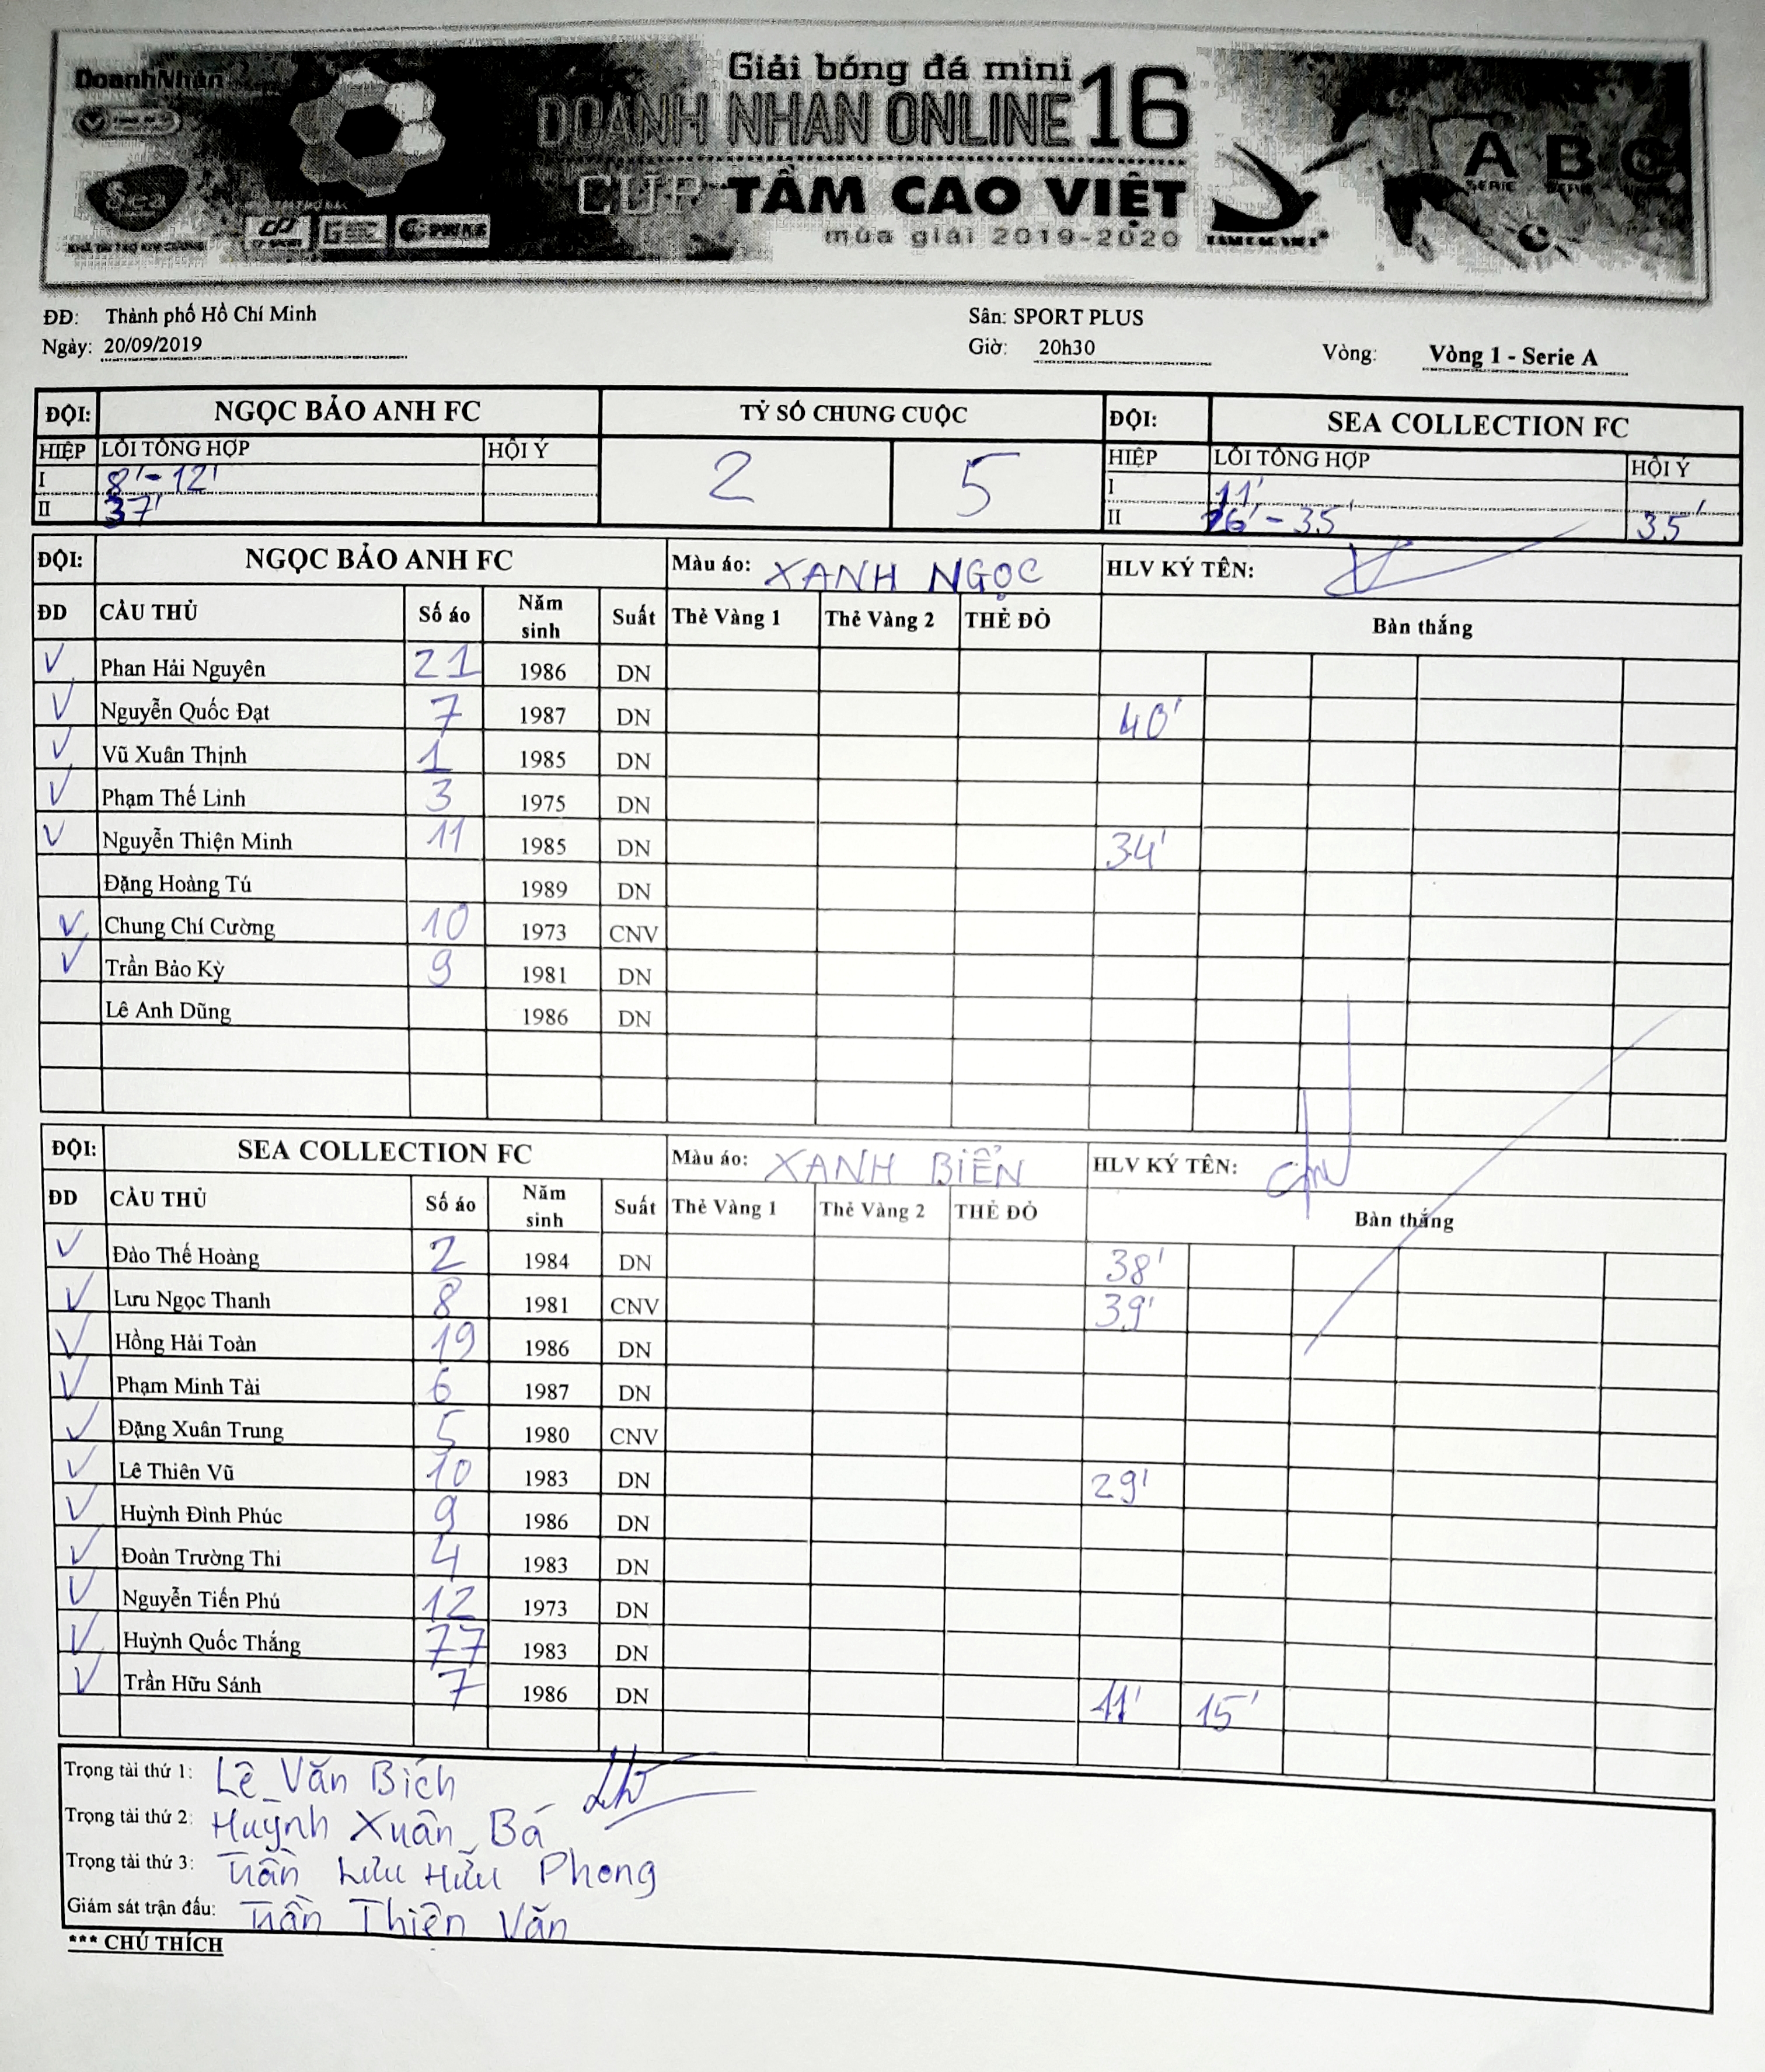 DoanhNhân
Giải bóng đá mini
DOANH NHÂN ONLINE 16
CUP TẦM CAO VIỆT
mùa giải 2019-2020
Sea
A B C
SERIE
ĐĐ: Thành phố Hồ Chí Minh Sân: SPORT PLUS
Ngày: 20/09/2019 Giờ: 20h30 Vòng: Vòng 1 - Serie A
ĐỘI: NGỌC BẢO ANH FC TỶ SỐ CHUNG CUỘC ĐỘI: SEA COLLECTION FC
HIỆP LỖI TỔNG HỢP HỘI Ý 2 5 HIỆP LỖI TỔNG HỢP HỘI Ý
I 8'-12' I 11'
II 37' II 26'-35' 35'
ĐỘI: NGỌC BẢO ANH FC Màu áo: XANH NGỌC HLV KÝ TÊN:
ĐD CẦU THỦ Số áo Năm sinh Suất Thẻ Vàng 1 Thẻ Vàng 2 THẺ ĐỎ Bàn thắng
V Phan Hải Nguyên 21 1986 DN
V Nguyễn Quốc Đạt 7 1987 DN 40'
V Vũ Xuân Thịnh 1 1985 DN
V Phạm Thế Linh 3 1975 DN
V Nguyễn Thiện Minh 11 1985 DN 34'
Đặng Hoàng Tú 1989 DN
V Chung Chí Cường 10 1973 CNV
V Trần Bảo Kỳ 9 1981 DN
Lê Anh Dũng 1986 DN
ĐỘI: SEA COLLECTION FC Màu áo: XANH BIỂN HLV KÝ TÊN:
ĐD CẦU THỦ Số áo Năm sinh Suất Thẻ Vàng 1 Thẻ Vàng 2 THẺ ĐỎ Bàn thắng
V Đào Thế Hoàng 2 1984 DN 38'
V Lưu Ngọc Thanh 8 1981 CNV 39'
V Hồng Hải Toàn 19 1986 DN
V Phạm Minh Tài 6 1987 DN
V Đặng Xuân Trung 5 1980 CNV
V Lê Thiên Vũ 10 1983 DN 29'
V Huỳnh Đình Phúc 9 1986 DN
V Đoàn Trường Thi 4 1983 DN
V Nguyễn Tiến Phú 12 1973 DN
V Huỳnh Quốc Thắng 77 1983 DN
V Trần Hữu Sánh 7 1986 DN 11' 15'
Trọng tài thứ 1: Lê Văn Bích
Trọng tài thứ 2: Huỳnh Xuân Bá
Trọng tài thứ 3: Trần Lưu Hữu Phong
Giám sát trận đấu: Trần Thiện Văn
*** CHÚ THÍCH